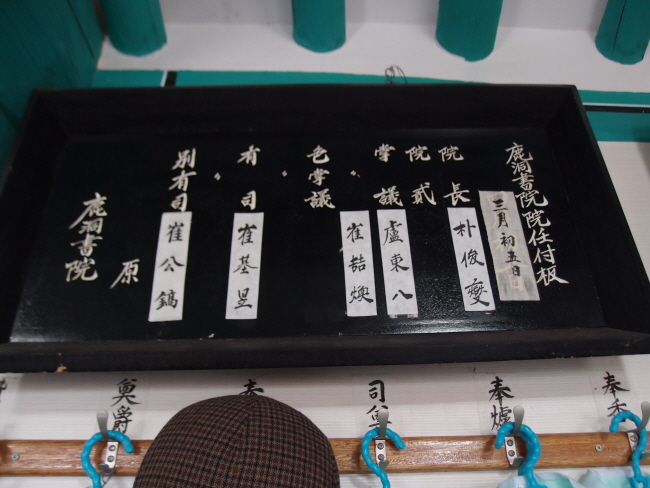 鹿洞書院院任付板
三月初五日
院長 朴俊燮
院貳 盧東八
掌議 崔喆煥
〃
色掌議
〃
有司 崔基昱
〃
別有司 崔公鎬
原
鹿洞書院
奉
奉爐
司
奠爵